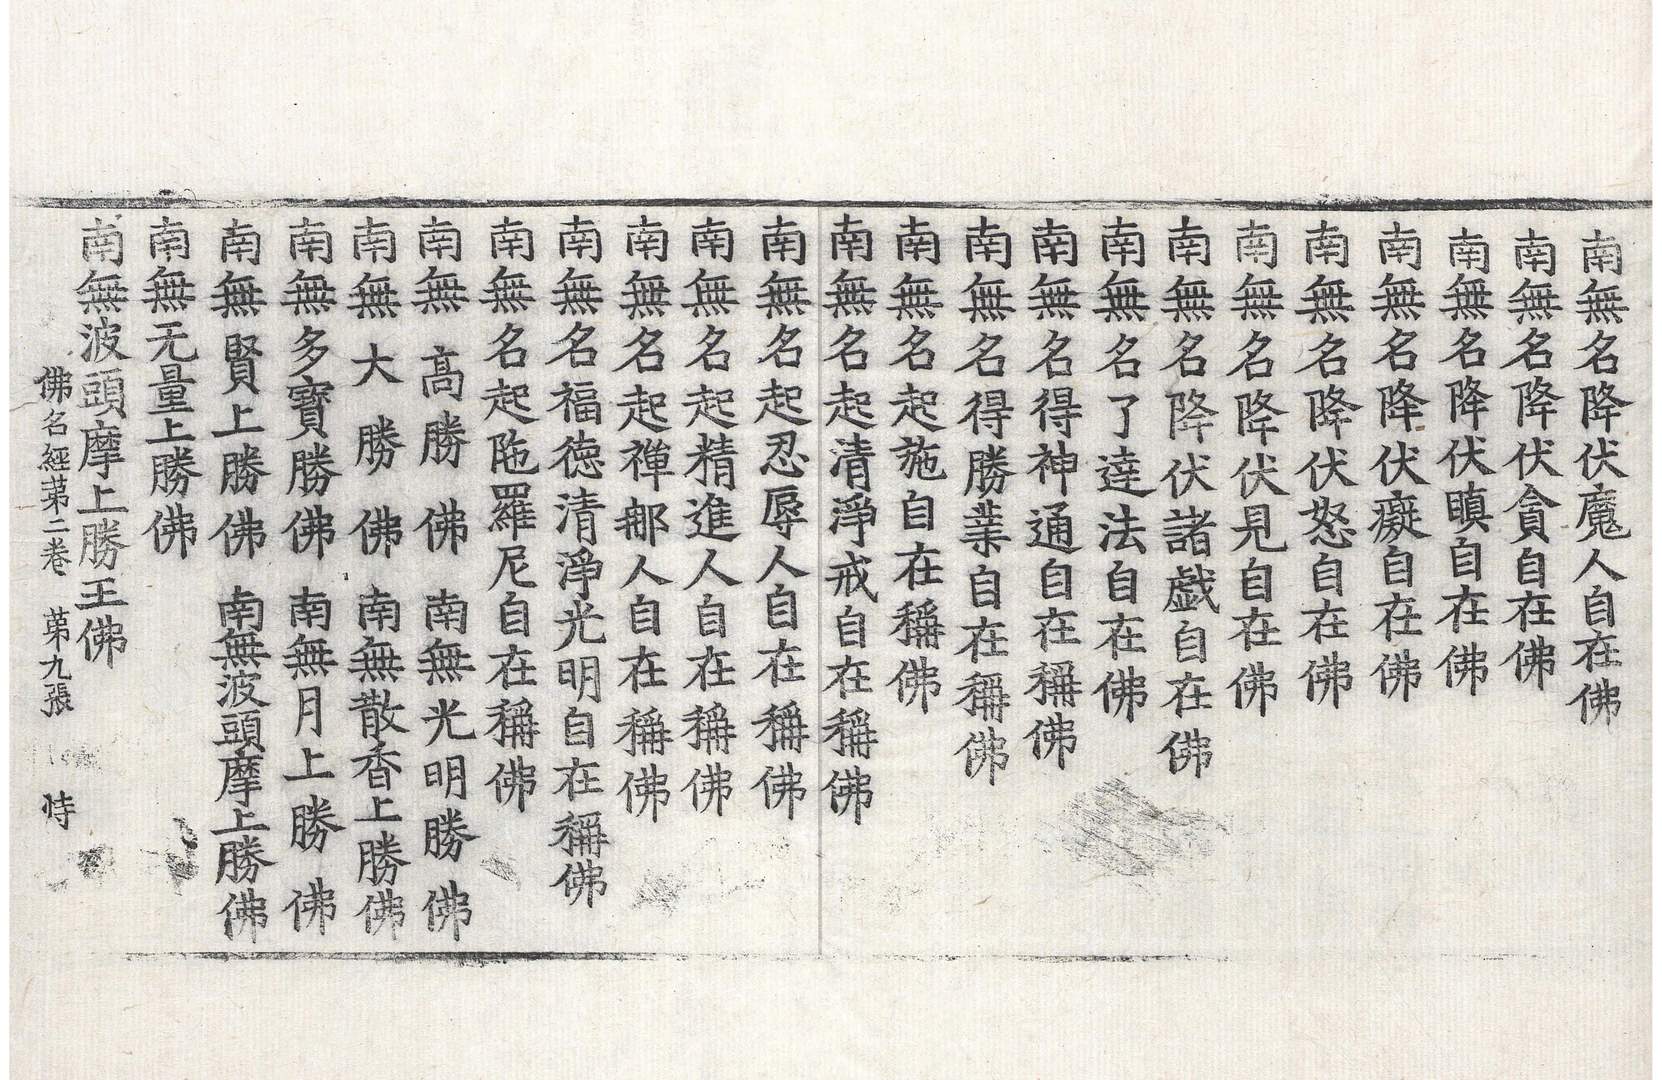 南無名降伏魔人自在佛
南無名降伏貪自在佛
南無名降伏瞋自在佛
南無名降伏癡自在佛
南無名降伏怒自在佛
南無名降伏見自在佛
南無名降伏諸戱自在佛
南無名了達法自在佛
南無名得神通自在稱佛
南無名得勝業自在稱佛
南無名起施自在稱佛
南無名起清淨戒自在稱佛
南無名起忍辱人自在稱佛
南無名起精進人自在稱佛
南無名起禪那人自在稱佛
南無名福徳清淨光明自在稱佛
南無名起陁羅尼自在稱佛
南無髙勝佛 南無光明勝佛
南無大勝佛 南無散香上勝佛
南無多寶勝佛 南無月上勝佛
南無賢上勝佛 南無波頭摩上勝佛
南無无量上勝佛
南無波頭摩上勝王佛
佛名經苐二卷 苐九張 恃